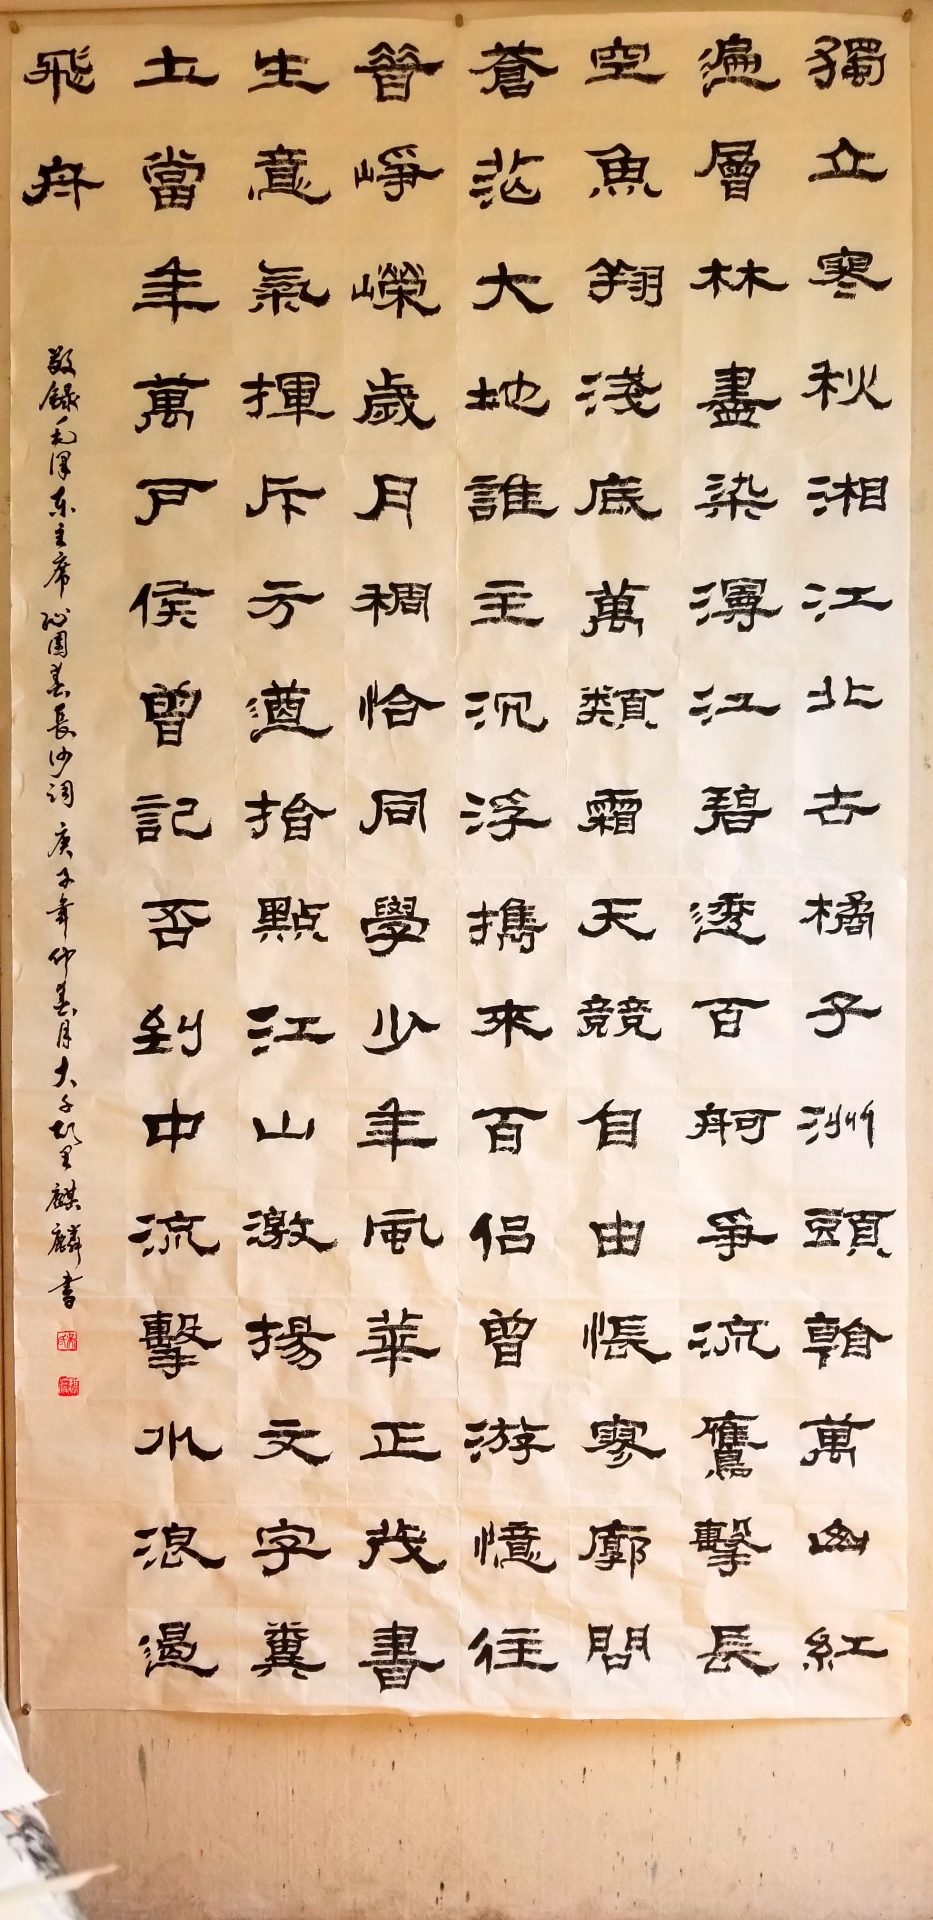 獨立寒秋湘江北去橘子洲頭看萬山紅
遍層林盡染漫江碧透百舸爭流鷹擊長
空魚翔淺底萬類霜天競自由悵寥廓問
蒼茫大地誰主沉浮攜來百侶曾游憶往
昔崢嶸歲月稠恰同學少年風華正茂書
生意氣揮斥方遒指點江山激揚文字糞
土當年萬戶侯曾記否到中流擊水浪遏
飛舟
敬録毛泽东主席沁園春長沙词庚子年仲春月大千故里麒麟書